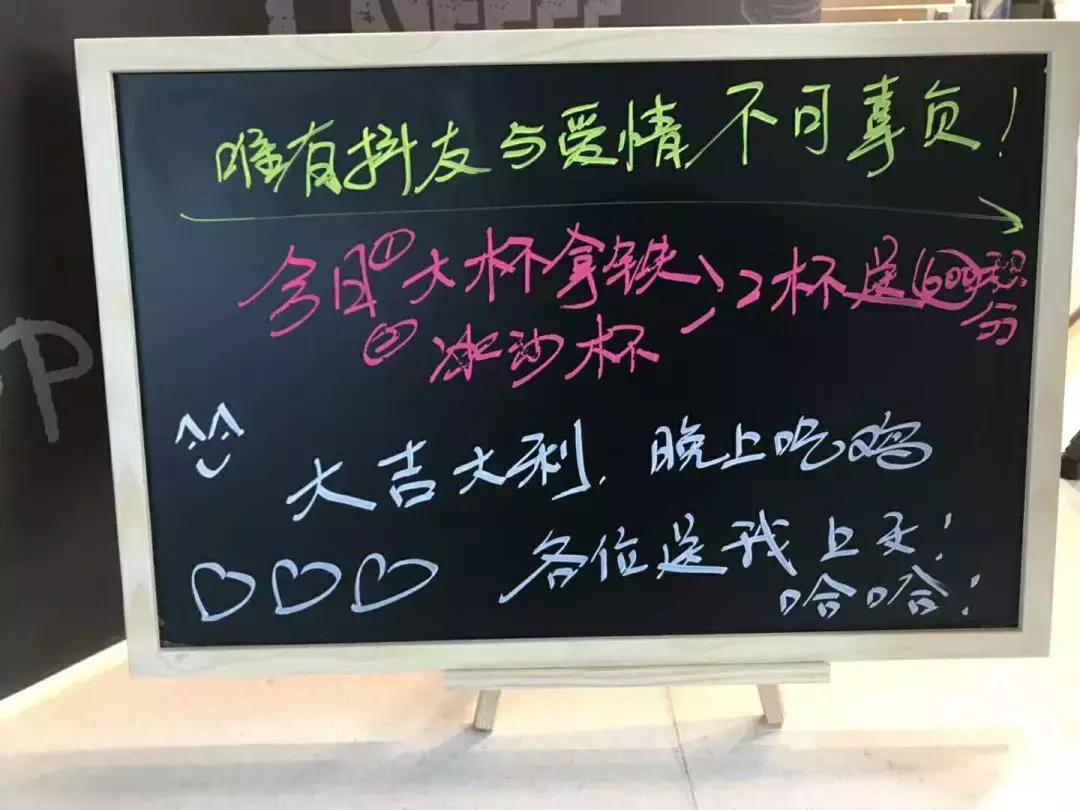 唯有抖友与爱情不可辜负!
今日①大杯拿铁、2杯送600积分
②冰沙杯
大吉大利.晚上吃鸡
各位送我上天!
哈哈!
P